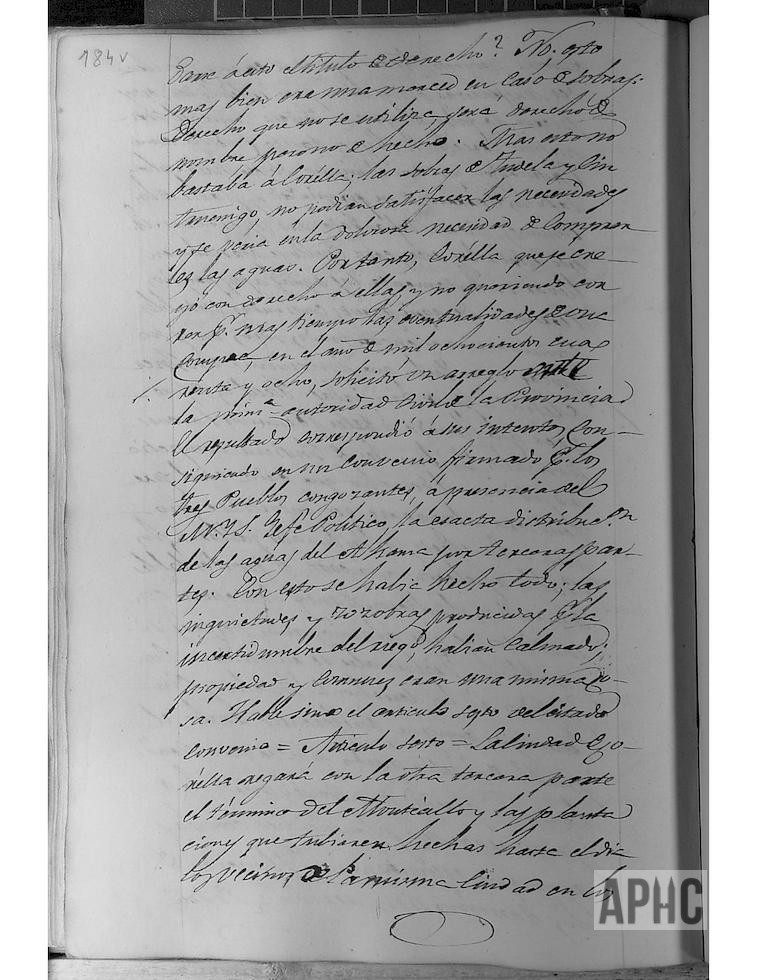 184 v
Darse á esto el título de derecho? No. esto
mas bien era una merced en caso de sobras:
derecho que no se utiliza será derecho de
nombre pero no de hecho. Mas esto no
bastaba á Corella; las sobras de Tudela y Cin
truenigo, no podian satisfacer las necesidades
y se veia en la dolorosa necesidad de comprar
les las aguas. Por tanto, Corella que se cre-
yó con derecho á ellas, y no queriendo cor
rer p.r mas tiempo las eventualidades de una
compra, en el año de mil ochocientos cua
renta y ocho, solicitó un arreglo ante
la prim.a autoridad Civil de la Provincia
El resultado correspondió á sus intentos, con-
siguiendo en un convenio firmado p.r los
tres Pueblos congozantes, á presencia del
M. Y. S. Gefe Politico, la esacta distribuc.n
de las aguas del Alhama por terceras par-
tes. Con esto se habia hecho todo; las
inquietudes y zozobras producidas p.r la
incertidumbre del riego, habian calmado;
propiedad y comunes eran una misma co-
sa. Hable sino el articulo sesto del citado
convenio = Articulo sesto = La Ciudad de Co-
rella regará con la otra tercera parte
el término del Montecillo y las planta
ciones que tubiaren hechas hasta el dia
los vecinos de la misma Ciudad en los
APHC